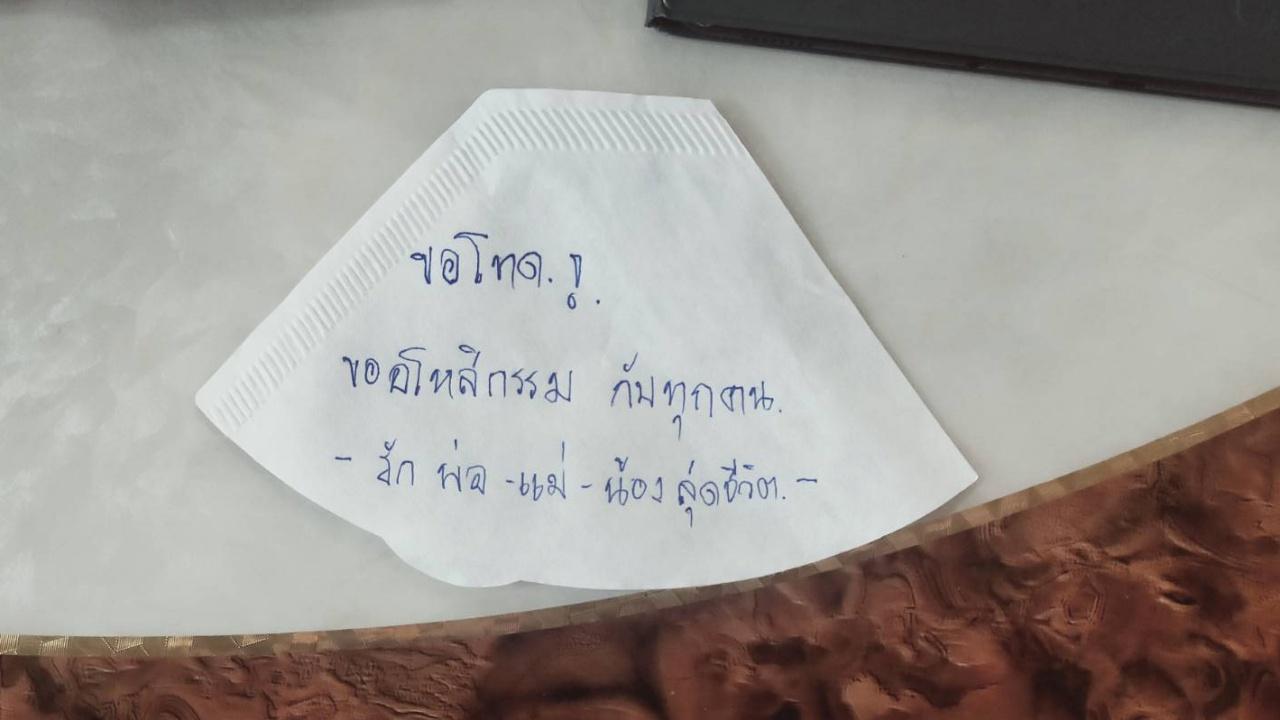 ขอโทด. ! .
ขออโหสิกรรม กับทุกคน.
- รัก พ่อ -แม่ - น้อง สุ่ดชีวิต. -